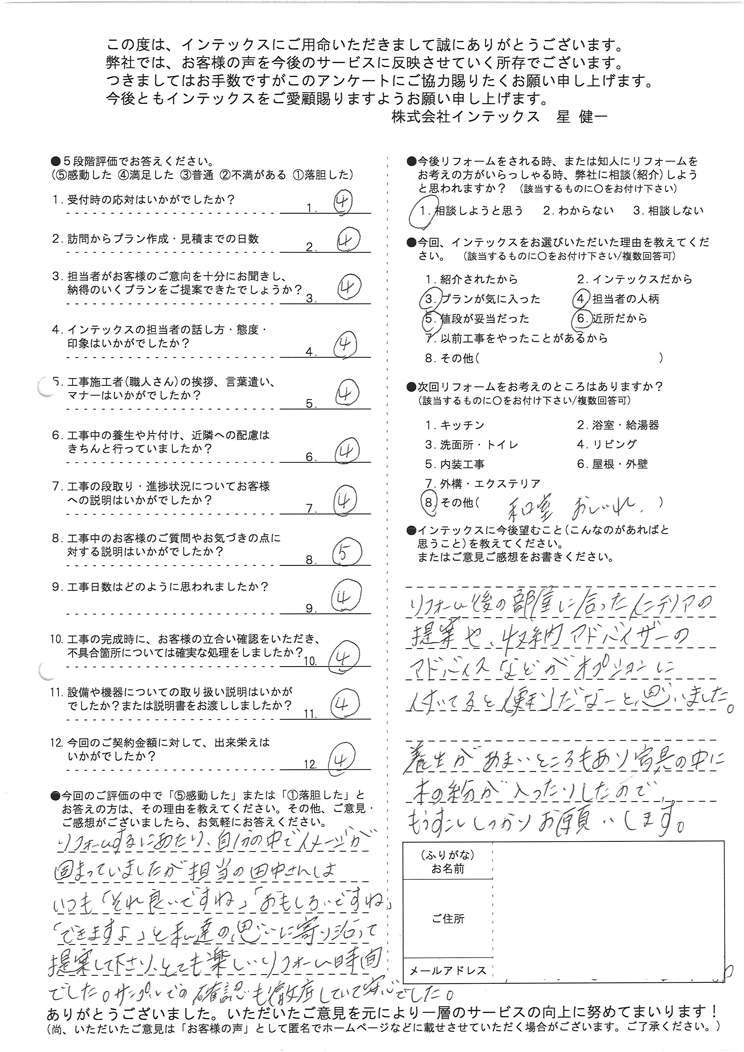 この度は、インテックスにご用命いただきまして誠にありがとうございます。
弊社では、お客様の声を今後のサービスに反映させていく所存でございます。
つきましてはお手数ですがこのアンケートにご協力賜りたくお願い申し上げます。
今後ともインテックスをご愛顧賜りますようお願い申し上げます。
株式会社インテックス 星 健一
●5段階評価でお答えください。
(⑤感動した ④満足した ③普通 ②不満がある ①落胆した)
1. 受付時の応対はいかがでしたか?
1. ④
2. 訪問からプラン作成・見積までの日数
2. ④
3. 担当者がお客様のご意向を十分にお聞きし、
納得のいくプランをご提案できたでしょうか?
3. ④
4. インテックスの担当者の話し方・態度・
印象はいかがでしたか?
4. ④
5. 工事施工者(職人さん)の挨拶、言葉遣い、
マナーはいかがでしたか?
5. ④
6. 工事中の養生や片付け、近隣への配慮は
きちんと行っていましたか?
6. ④
7. 工事の段取り・進捗状況についてお客様
への説明はいかがでしたか?
7. ④
8. 工事中のお客様のご質問やお気づきの点に
対する説明はいかがでしたか?
8. ⑤
9. 工事日数はどのように思われましたか?
9. ④
10. 工事の完成時に、お客様の立合い確認をいただき、
不具合箇所については確実な処理をしましたか?
10. ④
11. 設備や機器についての取り扱い説明はいかが
でしたか?または説明書をお渡ししましたか?
11. ④
12. 今回のご契約金額に対して、出来栄えは
いかがでしたか?
12. ④
●今回のご評価の中で「⑤感動した」または「①落胆した」と
お答えの方は、その理由を教えてください。その他、ご意見・
ご感想がございましたら、お気軽にお答えください。
リフォームするにあたり、自分の中でイメージが
固まっていましたが担当の田中さんは
いつも「それ良いですね」「おもしろいですね」
「できますよ」と私達の思いに寄り沿って
提案して下さり、とても楽しいリフォーム時間
でした。サンプルでの確認も徹底していて安心でした。
●今後リフォームをされる時、または知人にリフォームを
お考えの方がいらっしゃる時、弊社に相談(紹介)しよう
と思われますか? (該当するものに○をお付け下さい)
1. 相談しようと思う 2. わからない 3. 相談しない
●今回、インテックスをお選びいただいた理由を教えてくだ
さい。 (該当するものに○をお付け下さい/複数回答可)
1. 紹介されたから 2. インテックスだから
3. プランが気に入った 4. 担当者の人柄
5. 値段が妥当だった 6. 近所だから
7. 以前工事をやったことがあるから
8. その他( )
●次回リフォームをお考えのところはありますか?
(該当するものに○をお付け下さい/複数回答可)
1. キッチン 2. 浴室・給湯器
3. 洗面所・トイレ 4. リビング
5. 内装工事 6. 屋根・外壁
7. 外構・エクステリア
8. その他( 和室 おしいれ )
●インテックスに今後望むこと(こんなのがあればと
思うこと)を教えてください。
またはご意見ご感想をお書きください。
リフォーム後の部屋に合ったインテリアの
提案や、収納アドバイザーの
アドバイスなどがオプションに
付いてると便利だなーと思いました。
養生があまいところもあり家具の中に
木の粉が入ったりしたので
もう少ししっかりお願いします。
(ふりがな)
お名前
ご住所
メールアドレス
ありがとうございました。いただいたご意見を元により一層のサービスの向上に努めてまいります!
(尚、いただいたご意見は「お客様の声」として匿名でホームページなどに載せさせていただく場合がございます。ご了承ください。)